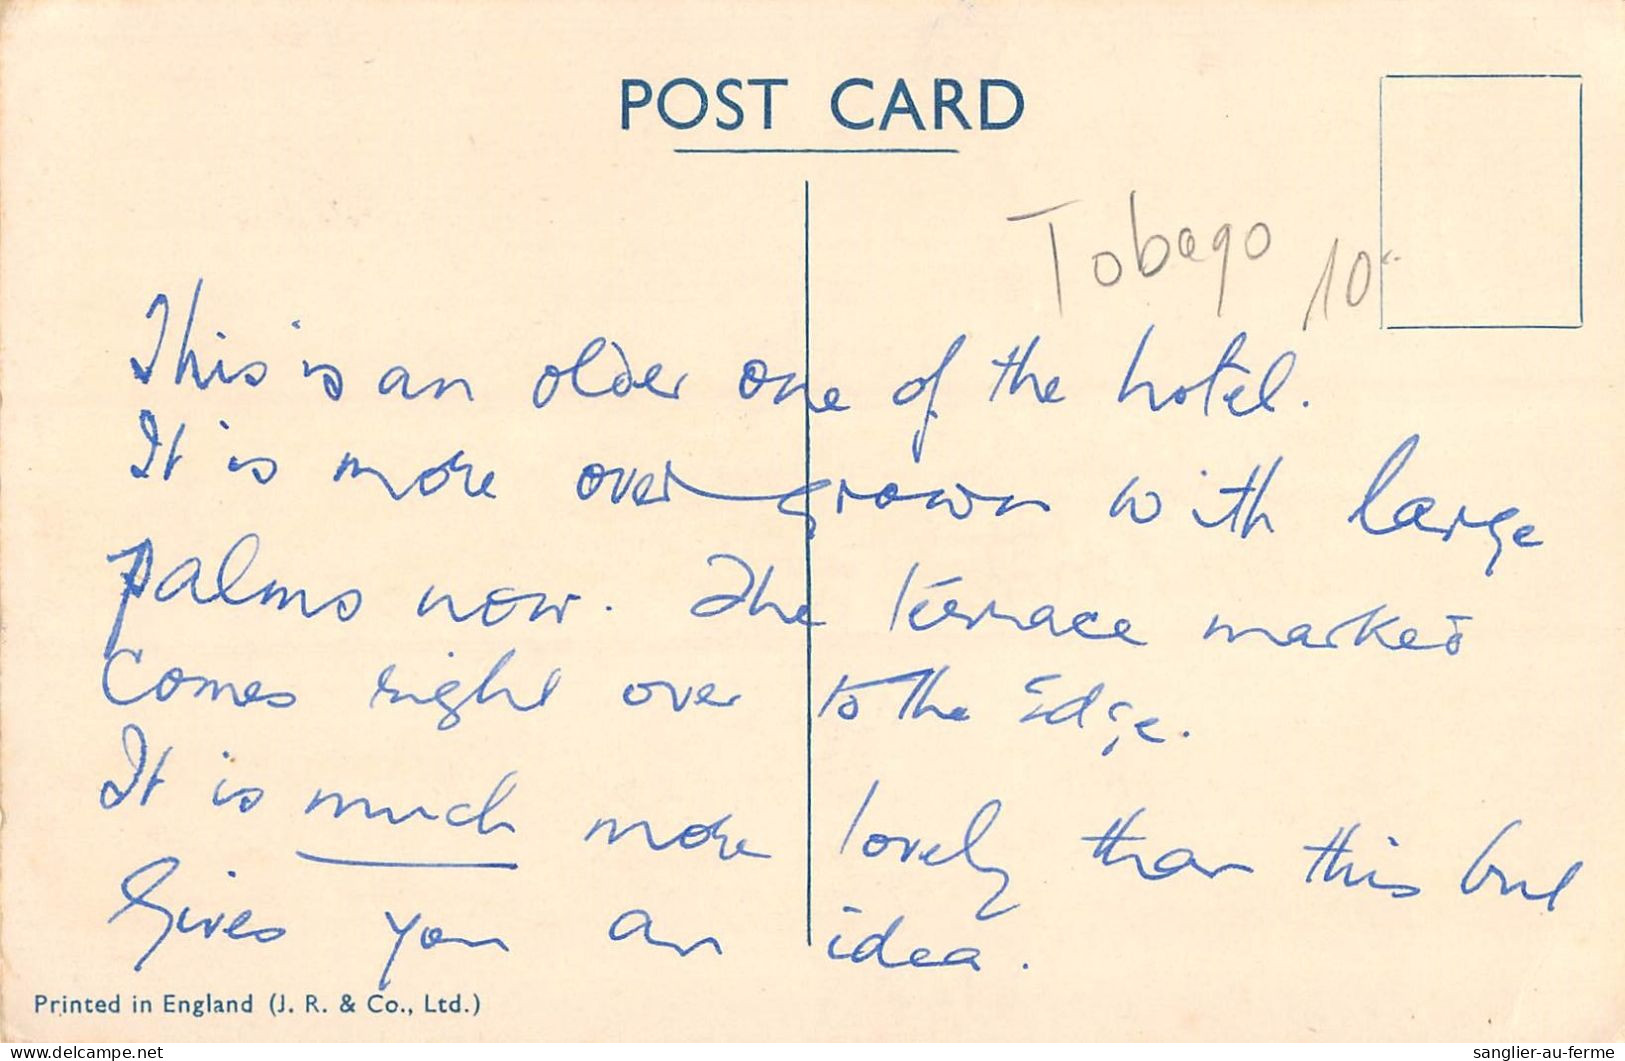 POST CARD
Tobago 10
This is an older one of the hotel.
It is more overgrown with large
palms now. The terrace marked
comes right over to the edge.
It is much more lovely than this but
gives you an idea.
Printed in England (J. R. & Co., Ltd.)
delcampe.net
sanglier-au-ferme